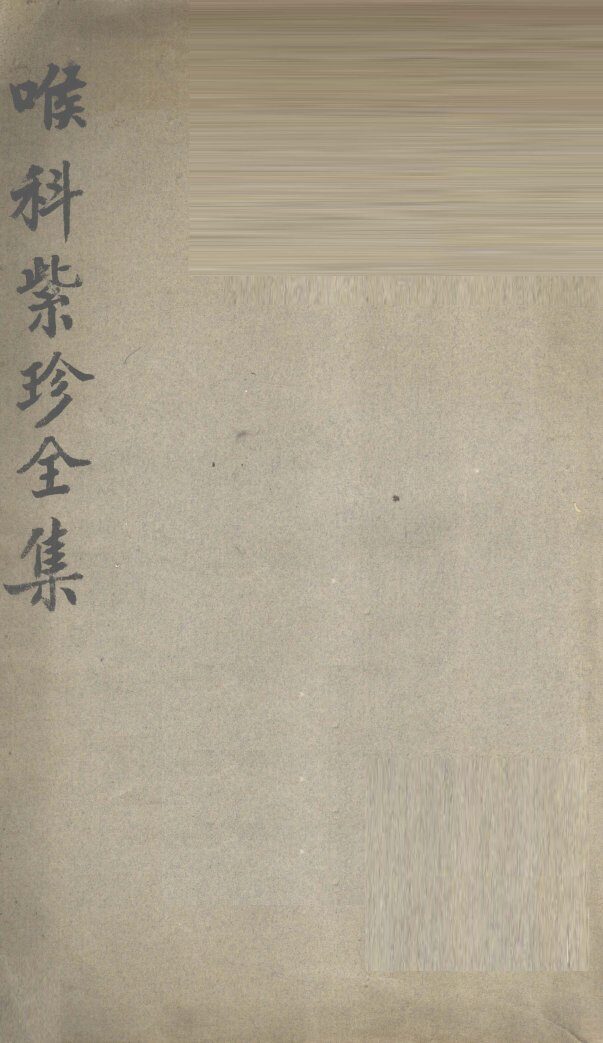 喉科紫珍全集